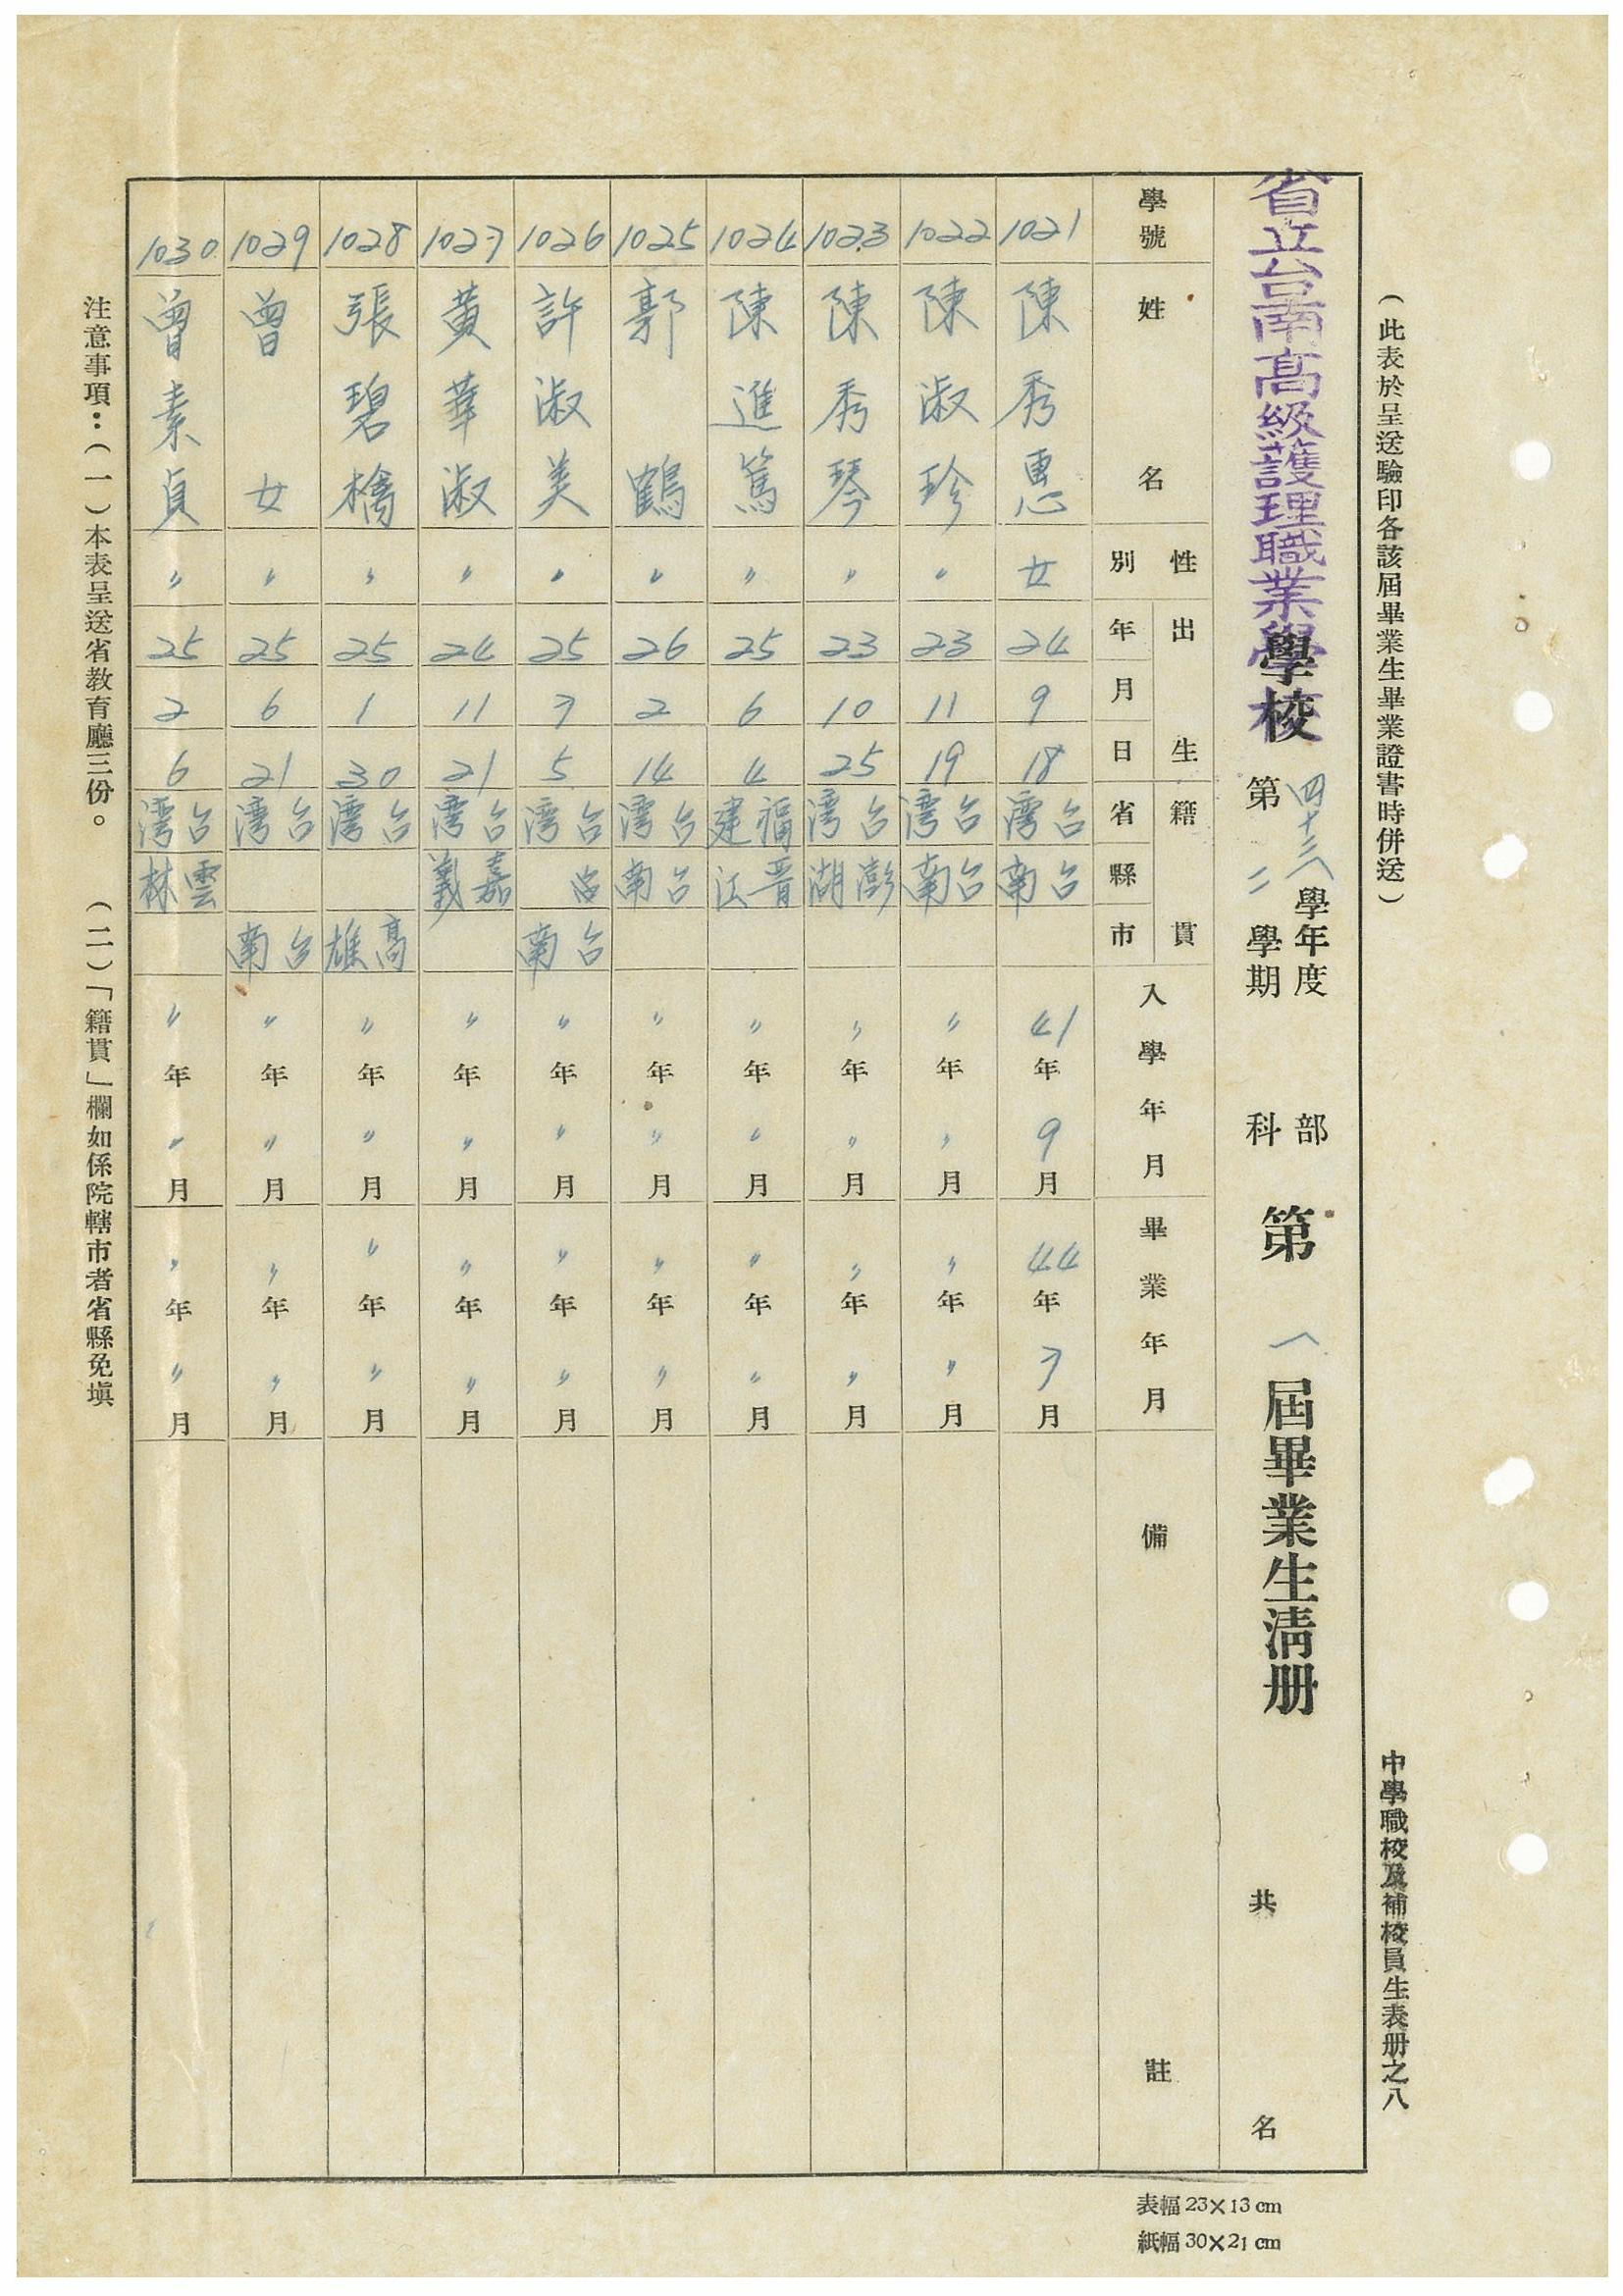 (此表於呈送驗印各該屆畢業生畢業證書時併送)
中學職校及補校員生表册之八
省立台南高級護理職業學校
學校 第四十三學年度二學期 部科 第一屆畢業生淸册 共 名
學號 姓名 性別 出生年月日 籍貫省縣市 入學年月 畢業年月 備註
1021 陳秀惠 女 24 9 18 台灣 台南 41年9月 44年7月
1022 陳淑珍 〃 23 11 19 台灣 台南 〃年〃月 〃年〃月
1023 陳秀琴 〃 23 10 25 台灣 澎湖 〃年〃月 〃年〃月
1024 陳進篤 〃 25 6 4 福建 晉江 〃年〃月 〃年〃月
1025 郭鶴 〃 26 2 14 台灣 台南 〃年〃月 〃年〃月
1026 許淑美 〃 25 7 5 台灣 台南 〃年〃月 〃年〃月
1027 黃華淑 〃 24 11 21 台灣 嘉義 〃年〃月 〃年〃月
1028 張碧檎 〃 25 1 30 台灣 高雄 〃年〃月 〃年〃月
1029 曾女 〃 25 6 21 台灣 台南 〃年〃月 〃年〃月
1030 曾素貞 〃 25 2 6 台灣 雲林 〃年〃月 〃年〃月
注意事項:(一)本表呈送省教育廳三份。 (二)「籍貫」欄如係院轄市者省縣免塡
表幅23×13cm
紙幅30×21cm